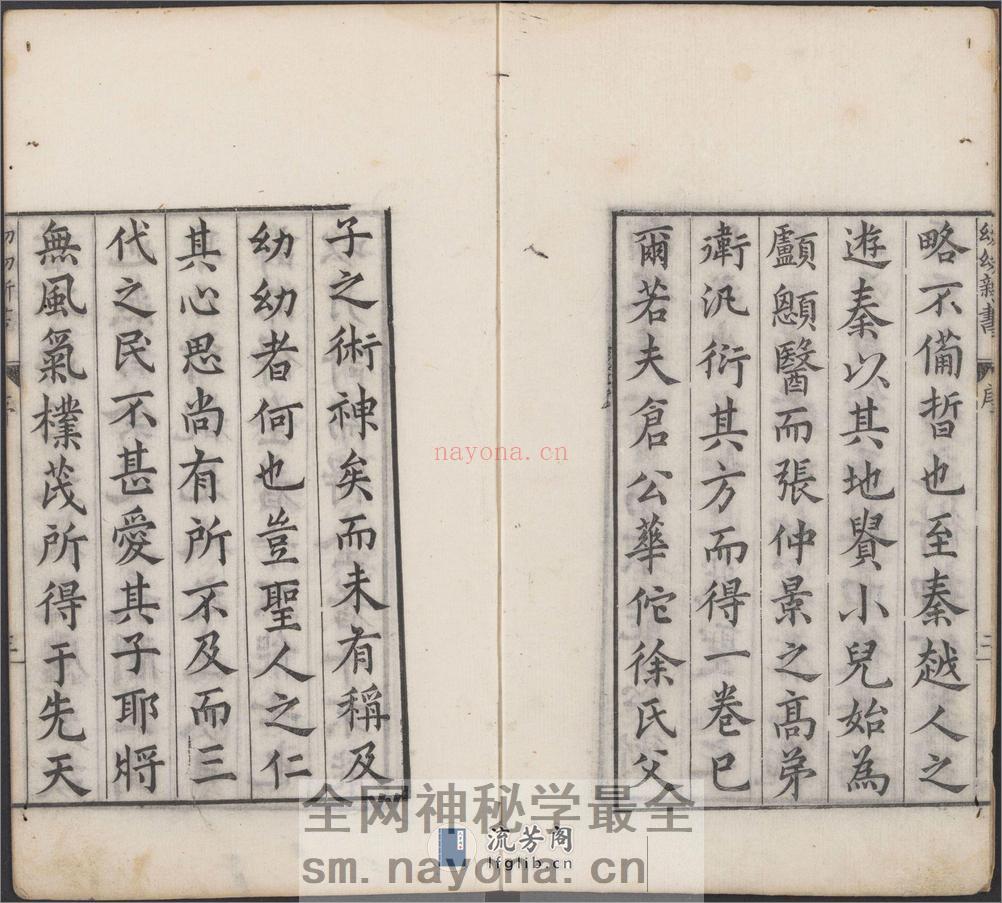 幼幼新書
序
二
略不備晢也至秦越人之
遊秦以其地貴小兒始為
顱顖醫而張仲景之高弟
衛汎衍其方而得一卷巳
爾若夫倉公華佗徐氏父
子之術神矣而未有稱及
幼幼者何也豈聖人之仁
其心思尚有所不及而三
代之民不甚愛其子耶將
無風氣樸茂所得于先天
nayona.cn
全网神秘学最全
流芳阁
lfglib.cn
sm.nayona.cn